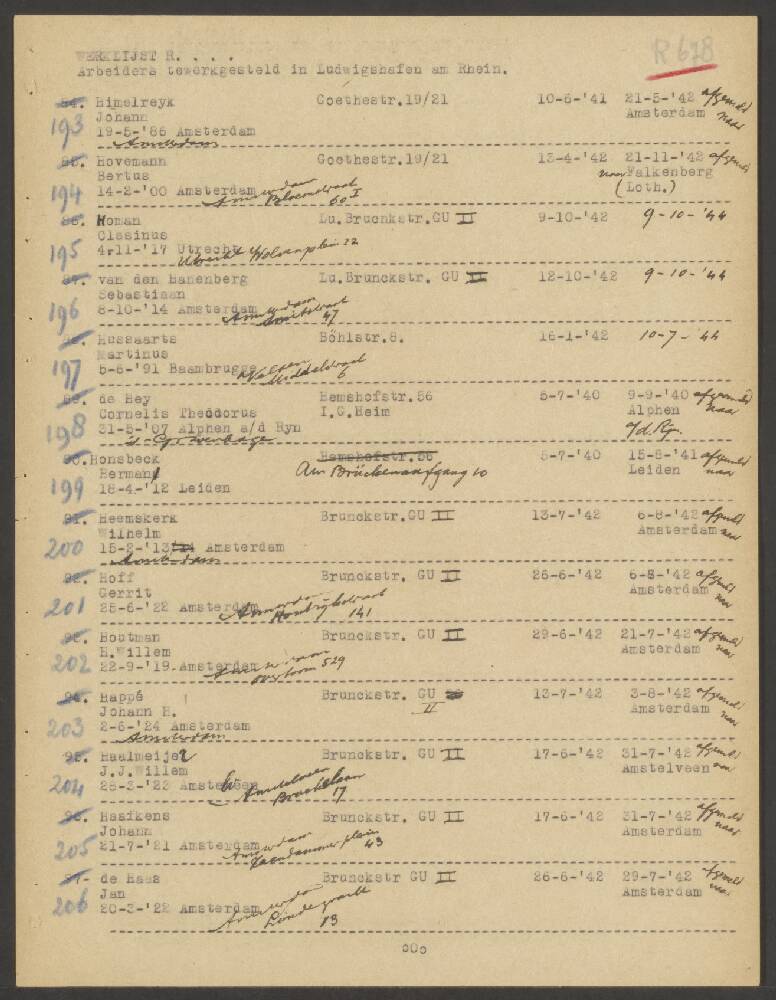 R 678
WERKLIJST R. . . .
Arbeiders tewerkgesteld in Ludwigshafen am Rhein.
84. Himelreyk Goethestr.19/21 10-6-'41 21-5-'42 afgemeld
193 Johann Amsterdam naar
19-5-'86 Amsterdam
Amsterdam
85. Hovemann Goethestr.19/21 13-4-'42 21-11-'42 afgemeld
Bertus naar Falkenberg
194 14-2-'00 Amsterdam Amsterdam (Loth.)
60 I
86. Homan Lu.Bruchkstr.GU II 9-10-'42 9-10-'44
Clasinus
195 4-11-'17 Utrecht Utrecht 22
87. van den Hanenberg Lu.Brunckstr. GU II 12-10-'42 9-10-'44
Sebastiaan
196 8-10-'14 Amsterdam Amsterdam
47
88. Hussaarts Böhlstr.8. 16-1-'42 10-7-'44
Martinus
197 5-6-'91 Baambrugge Velsen
6
89. de Hey Hemshofstr.56 5-7-'40 9-9-'40 afgemeld
Cornelis Theodorus I.G.Heim Alphen naar
198 31-5-'07 Alphen a/d Ryn a/d Rijn.
's-Gravenhage
90. Honsbeck Hemshofstr.56 5-7-'40 15-8-'41 afgemeld
Herman Am Brückenaufgang 10 Leiden naar
199 18-4-'12 Leiden
91. Heemskerk Brunckstr.GU II 13-7-'42 6-8-'42 afgemeld
Wilhelm Amsterdam naar
200 15-2-'13 Amsterdam
Amsterdam
92. Hoff Brunckstr. GU II 26-6-'42 6-8-'42 afgemeld
Gerrit Amsterdam naar
201 25-6-'22 Amsterdam Amsterdam
141
93. Houtman Brunckstr. GU II 29-6-'42 21-7-'42 afgemeld
H.Willem Amsterdam naar
202 22-9-'19 Amsterdam Amsterdam
Overtoom 529
94. Happé Brunckstr. GU 13-7-'42 3-8-'42 afgemeld
Johann H. II Amsterdam naar
203 2-6-'24 Amsterdam
Amsterdam
95. Haalmeijer Brunckstr. GU II 17-6-'42 31-7-'42 afgemeld
J.J.Willem Amstelveen naar
204 28-3-'23 Amstelveen Amstelveen
17
96. Haafkens Brunckstr. GU II 17-6-'42 31-7-'42 afgemeld
Johann Amsterdam naar
205 21-7-'21 Amsterdam Amsterdam
Zaandammerplein 43
97. de Haas Brunckstr GU II 26-6-'42 29-7-'42 afgemeld
Jan Amsterdam naar
206 20-3-'22 Amsterdam Amsterdam
Lindegracht
oOo